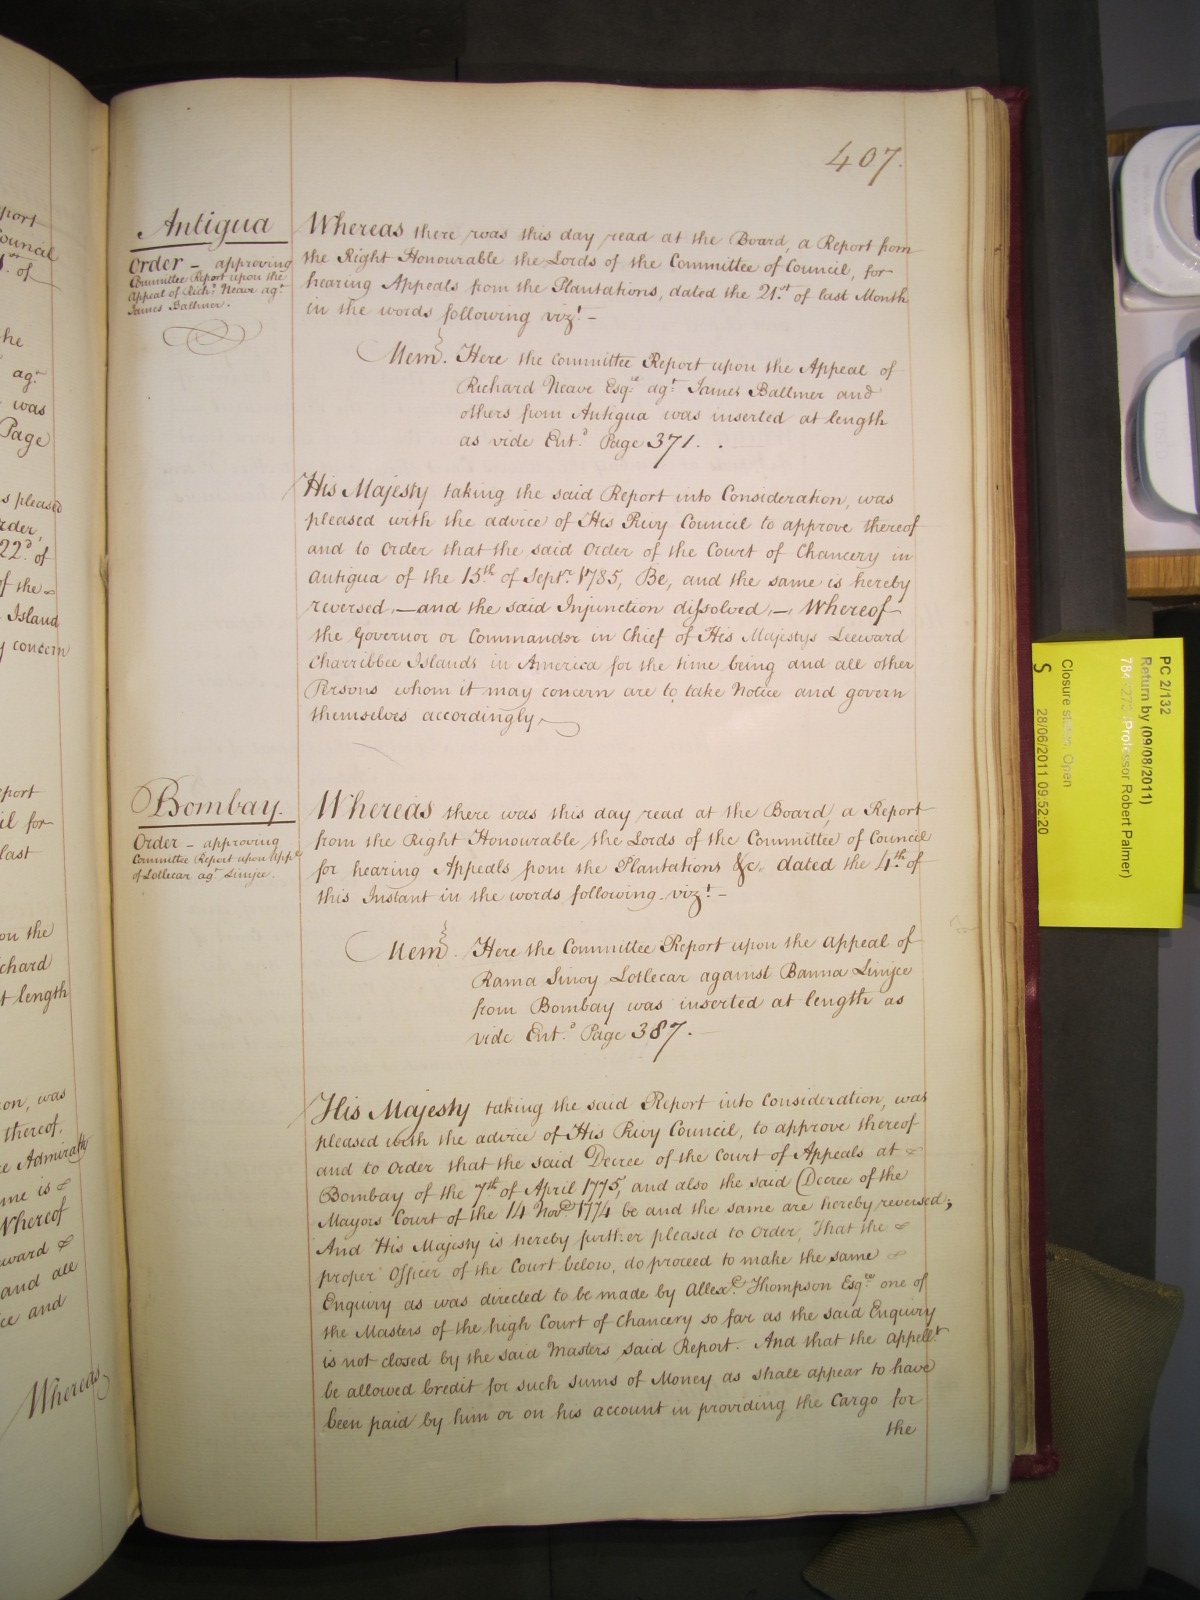 407.
Antigua
Order – approving
Committee Report upon the
Appeal of Richd. Neave agt.
James Ballmer.
Whereas there was this day read at the Board, a Report from
the Right Honourable the Lords of the Committee of Council, for
hearing Appeals from the Plantations, dated the 21.st of last Month
in the words following vizt. –
Mem. Here the Committee Report upon the Appeal of
Richard Neave Esqr. agt. James Ballmer and
others from Antigua was inserted at length
as vide Ent.d Page 371. .
His Majesty taking the said Report into Consideration, was
pleased with the advice of His Privy Council to approve thereof
and to Order that the said Order of the Court of Chancery in
Antigua of the 15th of Septr. 1785, Be, and the same is hereby
reversed, – and the said Injunction dissolved, – Whereof
the Governor or Commander in Chief of His Majestys Leeward
Charribbee Islands in America for the time being and all other
Persons whom it may concern are to take Notice and govern
themselves accordingly
Bombay.
Order – approving
Committee Report upon Appl.
of Lotlecar agt. Linijee.
Whereas there was this day read at the Board, a Report
from the Right Honourable the Lords of the Committee of Council
for hearing Appeals from the Plantations &c. dated the 4th. of
this Instant in the words following vizt. –
Mem. Here the Committee Report upon the Appeal of
Rama Sinoy Lotlecar against Banna Linijee
from Bombay was inserted at length as
vide Ent.d Page 387. –
His Majesty taking the said Report into Consideration, was
pleased with the advice of His Privy Council, to approve thereof
and to Order that the said Decree of the Court of Appeals at
Bombay of the 7th of April 1775, and also the said Decree of the
Mayors Court of the 14 Novr. 1774 be and the same are hereby reversed;
And His Majesty is hereby further pleased to Order, That the
proper Officer of the Court below, do proceed to make the same
Enquiry as was directed to be made by Allexr. Thompson Esqre one of
the Masters of the high Court of Chancery so far as the said Enquiry
is not closed by the said Masters said Report. And that the appellt.
be allowed Credit for such sums of Money as shall appear to have
been paid by him or on his account in providing the Cargo for
the
port
ouncil
of
he
agt.
was
Page
s pleased
rder,
22d. of
of the
Island
y concern
eport
il for
last
on the
chard
t length
on, was
thereof,
e Admiralty
me is
Whereof
ward
and all
ce and
Whereas
PC 2/132
Return by (09/08/2011)
(Professor Robert Palmer)
Closure status: Open
S
28/06/2011 09:52:20